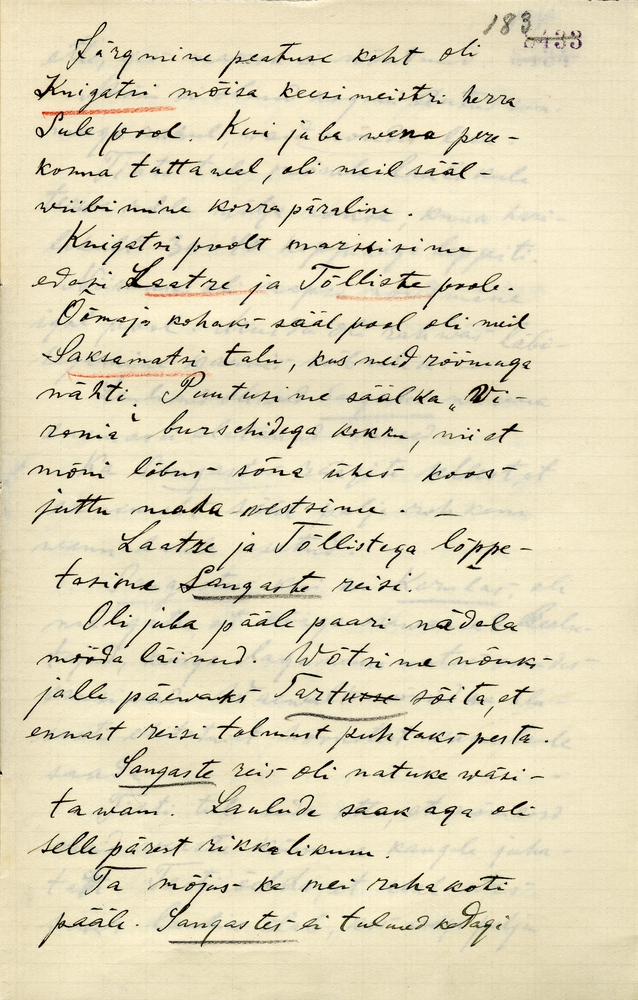 183
5433
Järgmine peatuse koht oli
Knigatsi mõisa keesimeistri herra
Sule pool. Kui juba wana pere-
konna tuttawal, oli meil sääl-
wiibimine korrapäraline.
Knigatsi poolt marssisime
edasi Laatre ja Tõlliste poole.
Öömaja kohaks sääl pool oli meil
Saksamatsi talu, kus meid rõõmuga
nähti. Puutusime sääl ka „Vi-
ronia" burschidega kokku, nii et
mõni lõbus sõna ühes koos
juttu maha westsime. —
Laatre ja Tõllistega lõppe-
tasime Sangaste reisi.
Oli juba pääle paari nädala
mööda läinud. Wõtsime nõuks
jälle päewaks Tartusse sõita, et
ennast reisi tolmust puhtaks pesta.
Sangaste reis oli natuke wäsi-
tawam. Laulude saak aga oli
selle pärast rikkalikum.
Ta mõjus ka mei rahakoti
pääle. Sangastes ei tulnud kedagi